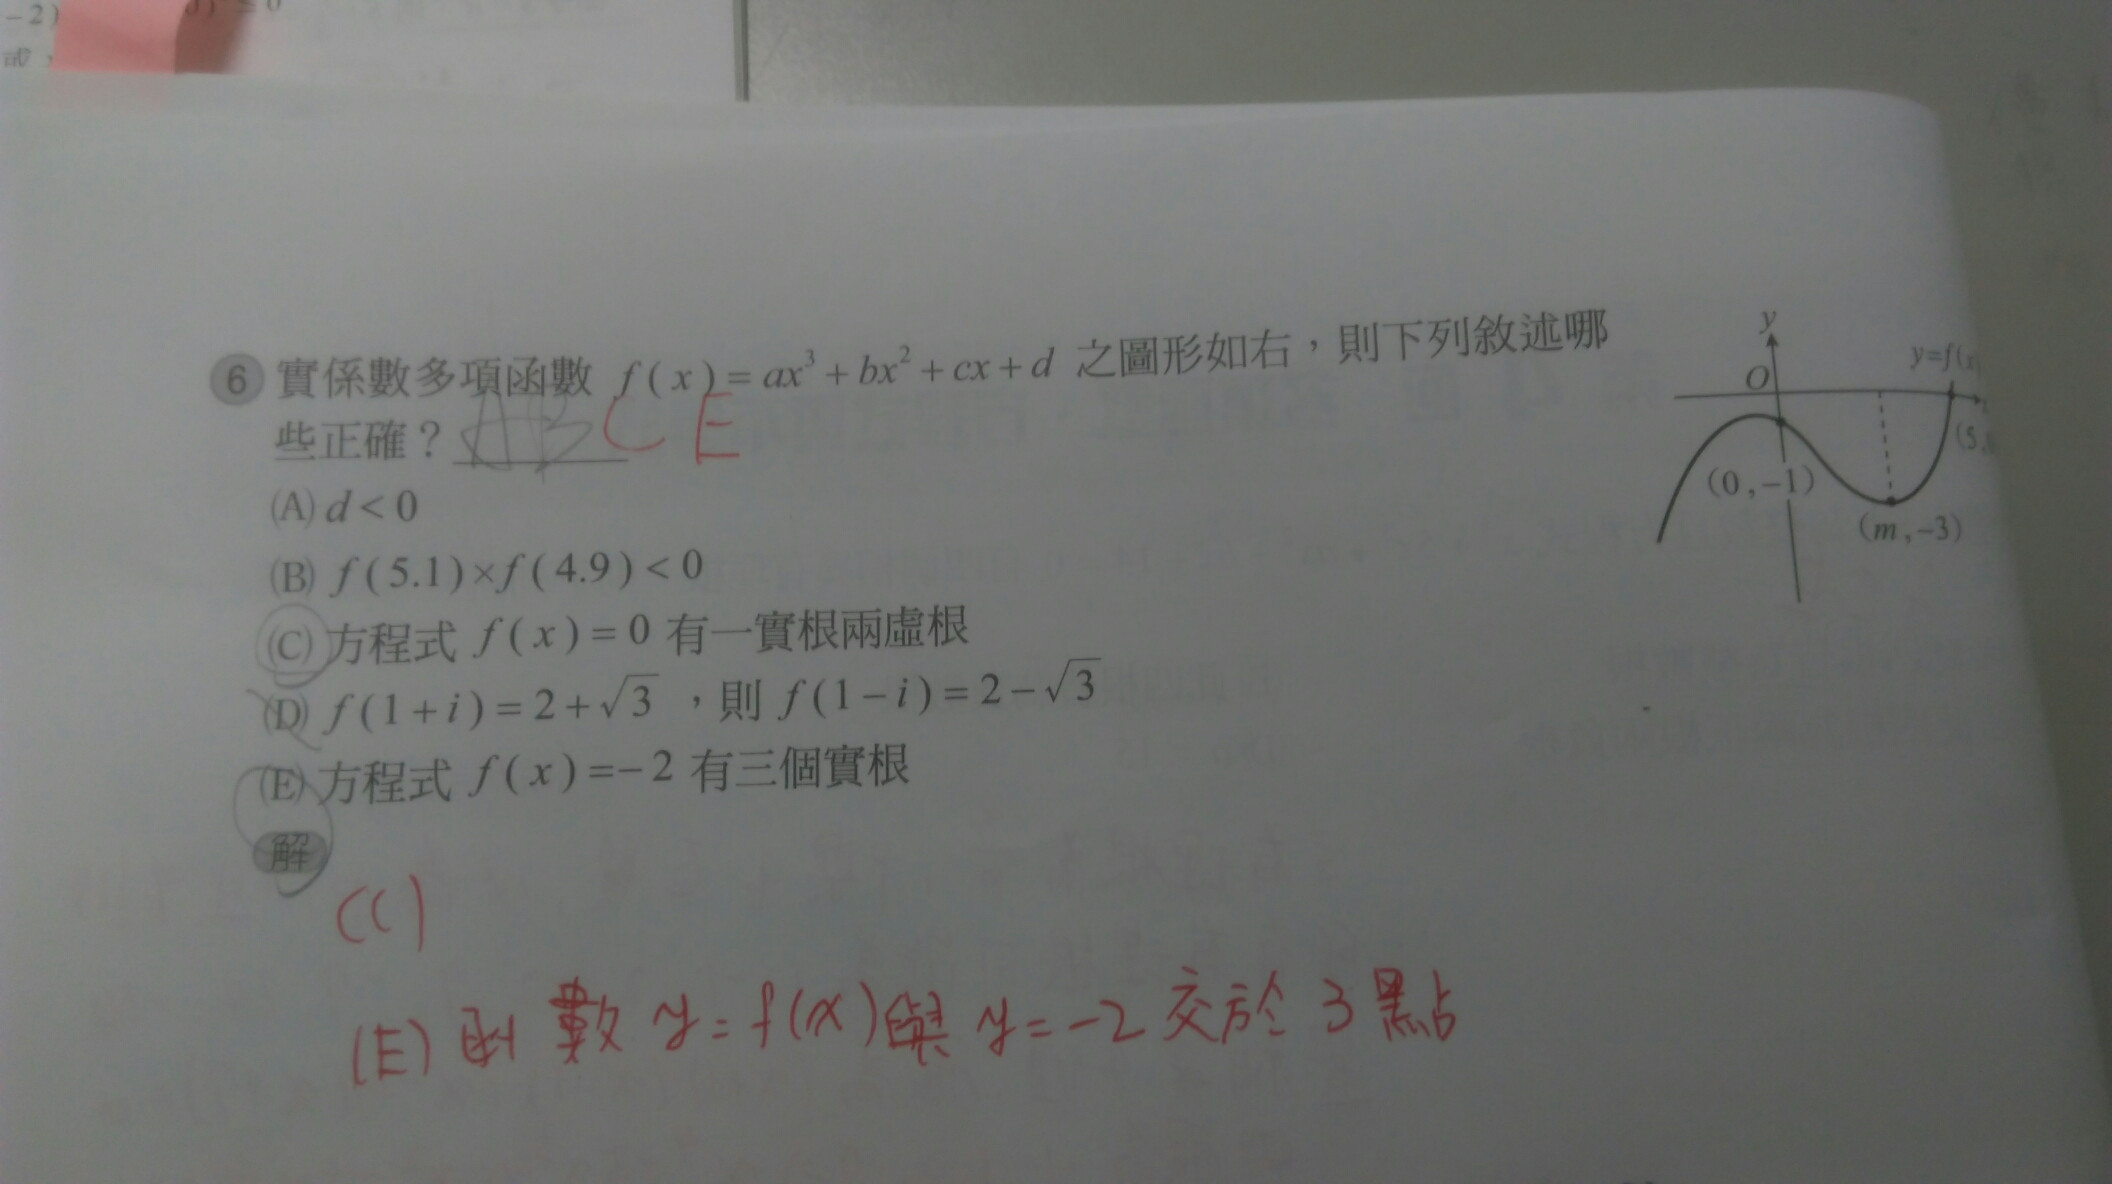 -2)
≤0
或
6 實係數多項函數 f(x)=ax³+bx²+cx+d 之圖形如右，則下列敘述哪
些正確？AB CE
(A) d<0
(B) f(5.1)×f(4.9)<0
(C) 方程式 f(x)=0 有一實根兩虛根
(D) f(1+i)=2+√3 ，則 f(1-i)=2-√3
(E) 方程式 f(x)=-2 有三個實根
解
y
O
y=f(x)
(5,
(0,-1)
(m,-3)
(C)
(E) 函數 y=f(x)與 y=-2 交於 3 點